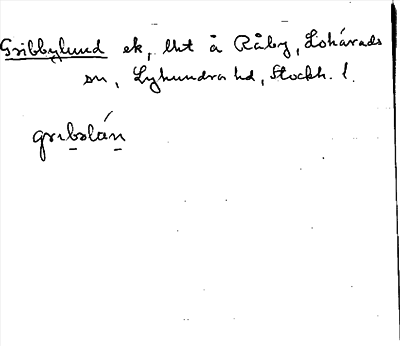 Gribbylund ek, lht å Råby, Lohärads
sn, Lyhundra hd, Stockh. l.
gribolán